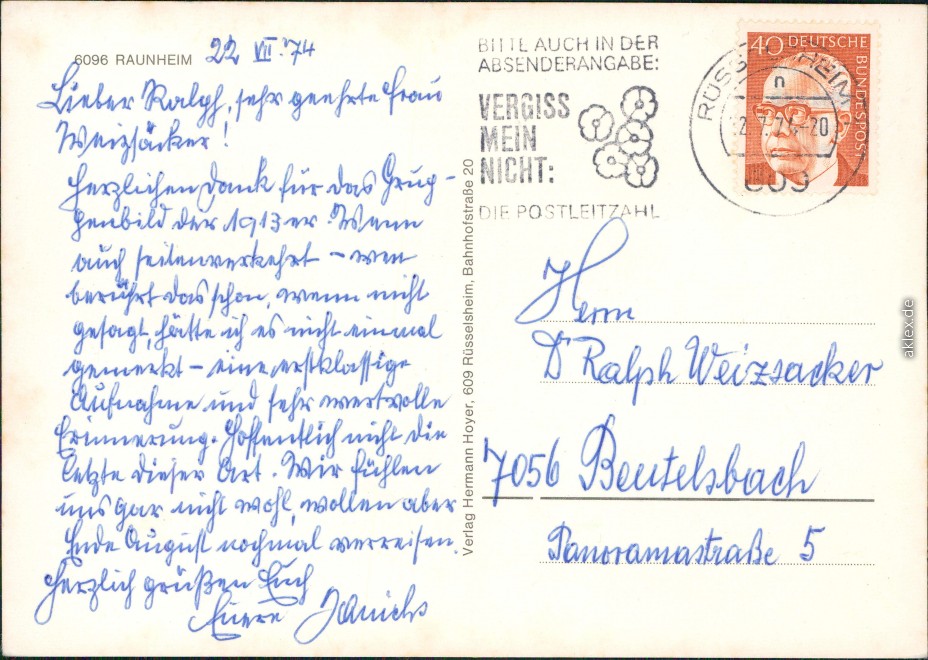 6096 RAUNHEIM 22 VII. 74
Lieber Ralph, sehr geehrte Frau
Weizsäcker!
Herzlichen Dank für das Grup-
penbild der 1913er. Wenn
auch seitenverkehrt – wen
berührt das schon, wenn nicht
gesagt, hätte ich es nicht einmal
gemerkt – eine erstklassige
Aufnahme und sehr wertvolle
Erinnerung. Hoffentlich nicht die
letzte dieser Art. Wir fühlen
uns gar nicht wohl, wollen aber
Ende August nochmal verreisen.
Herzlich grüßen Euch
Euere
Verlag Hermann Hoyer, 609 Rüsselsheim, Bahnhofstraße 20
BITTE AUCH IN DER
ABSENDERANGABE:
VERGISS
MEIN
NICHT:
DIE POSTLEITZAHL
40 DEUTSCHE
BUNDESPOST
n
609
Herrn
Dr Ralph Weizsacker
7056 Beutelsbach
Panoramastraße 5
aklex.de